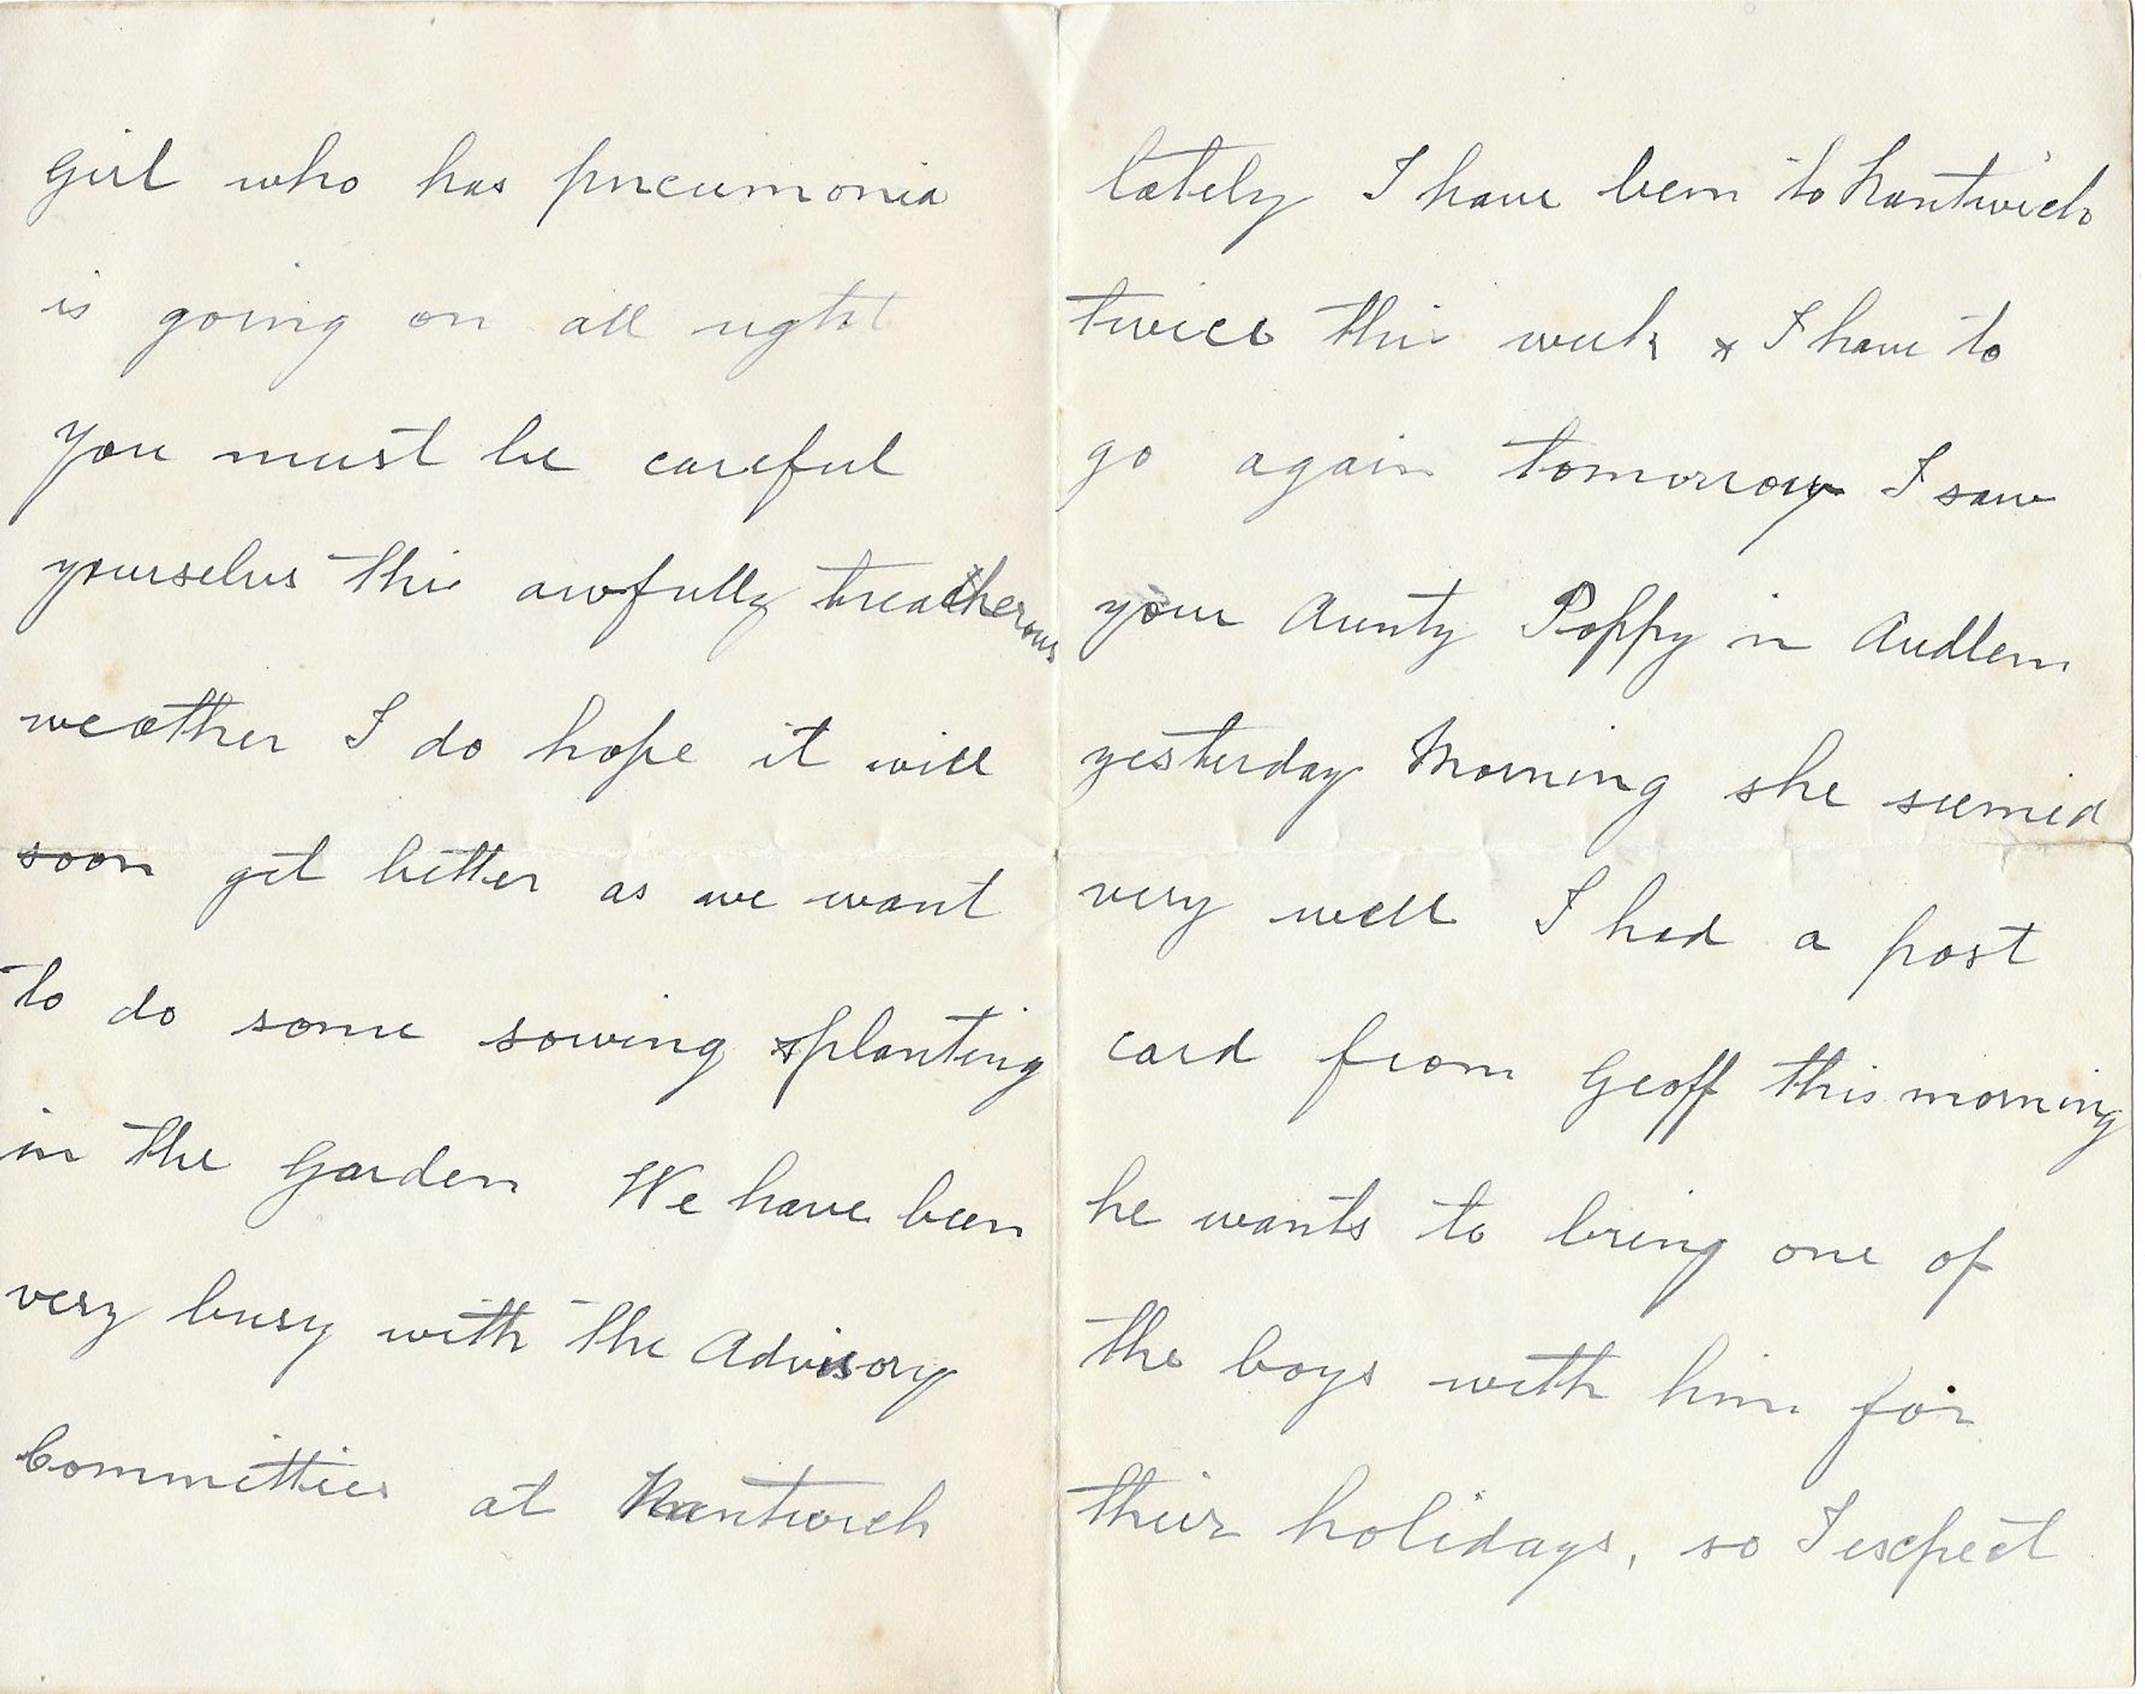 girl who has pneumonia
is going on all right
You must be careful
yourselves this awfully treacherous
weather I do hope it will
soon get better as we want
to do some sowing & planting
in the Garden We have been
very busy with the Advisory
Committies at Nantwich
lately I have been to Nantwich
twice this week & I have to
go again tomorrow I saw
your Aunty Poppy in Audlem
yesterday Morning she seemed
very well I had a post
card from Geoff this morning
he wants to bring one of
the boys with him for
their holidays, so I expect